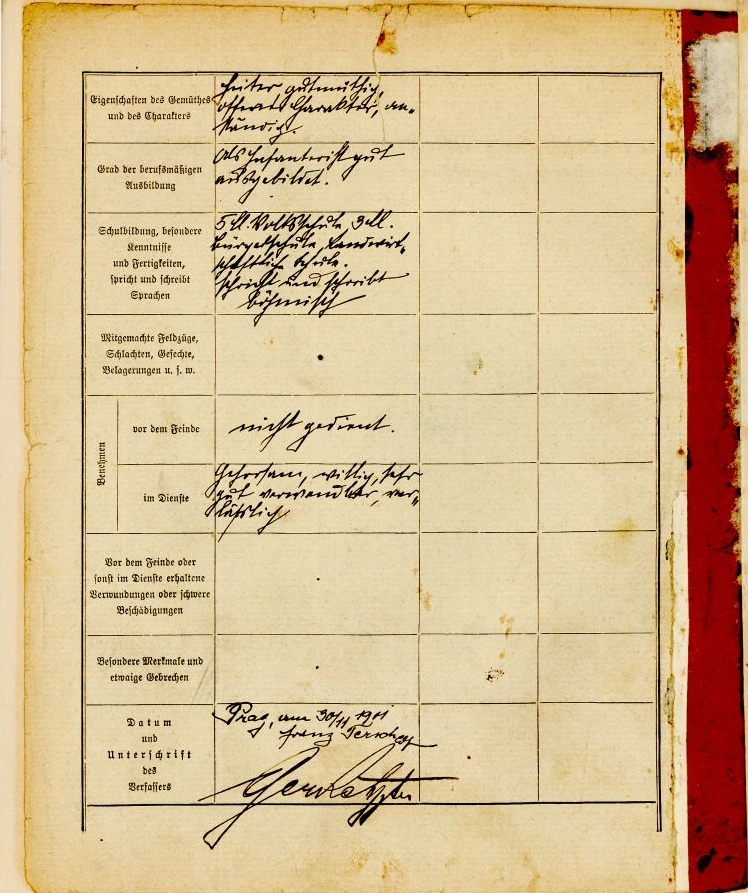 Eigenschaften des Gemüthes
und des Charakters
heiter gutmüthig,
offener Charakter, an-
ständig.
Grad der berufsmäßigen
Ausbildung
Als Infanterist gut
ausgebildet.
Schulbildung, besondere
Kenntnisse
und Fertigkeiten,
spricht und schreibt
Sprachen
5 Kl. Volksschule, 3 Kl.
Bürgerschule, landwirt-
schaftliche Schule.
spricht und schreibt
böhmisch
Mitgemachte Feldzüge,
Schlachten, Gefechte,
Belagerungen u. s. w.
Benehmen
vor dem Feinde
nicht gedient.
im Dienste
Gehorsam, willig, sehr
gut verwendbar, ver-
läßlich
Vor dem Feinde oder
sonst im Dienste erhaltene
Verwundungen oder schwere
Beschädigungen
Besondere Merkmale und
etwaige Gebrechen
Datum
und
Unterschrift
des
Verfassers
Prag, am 30/11 1911
Franz